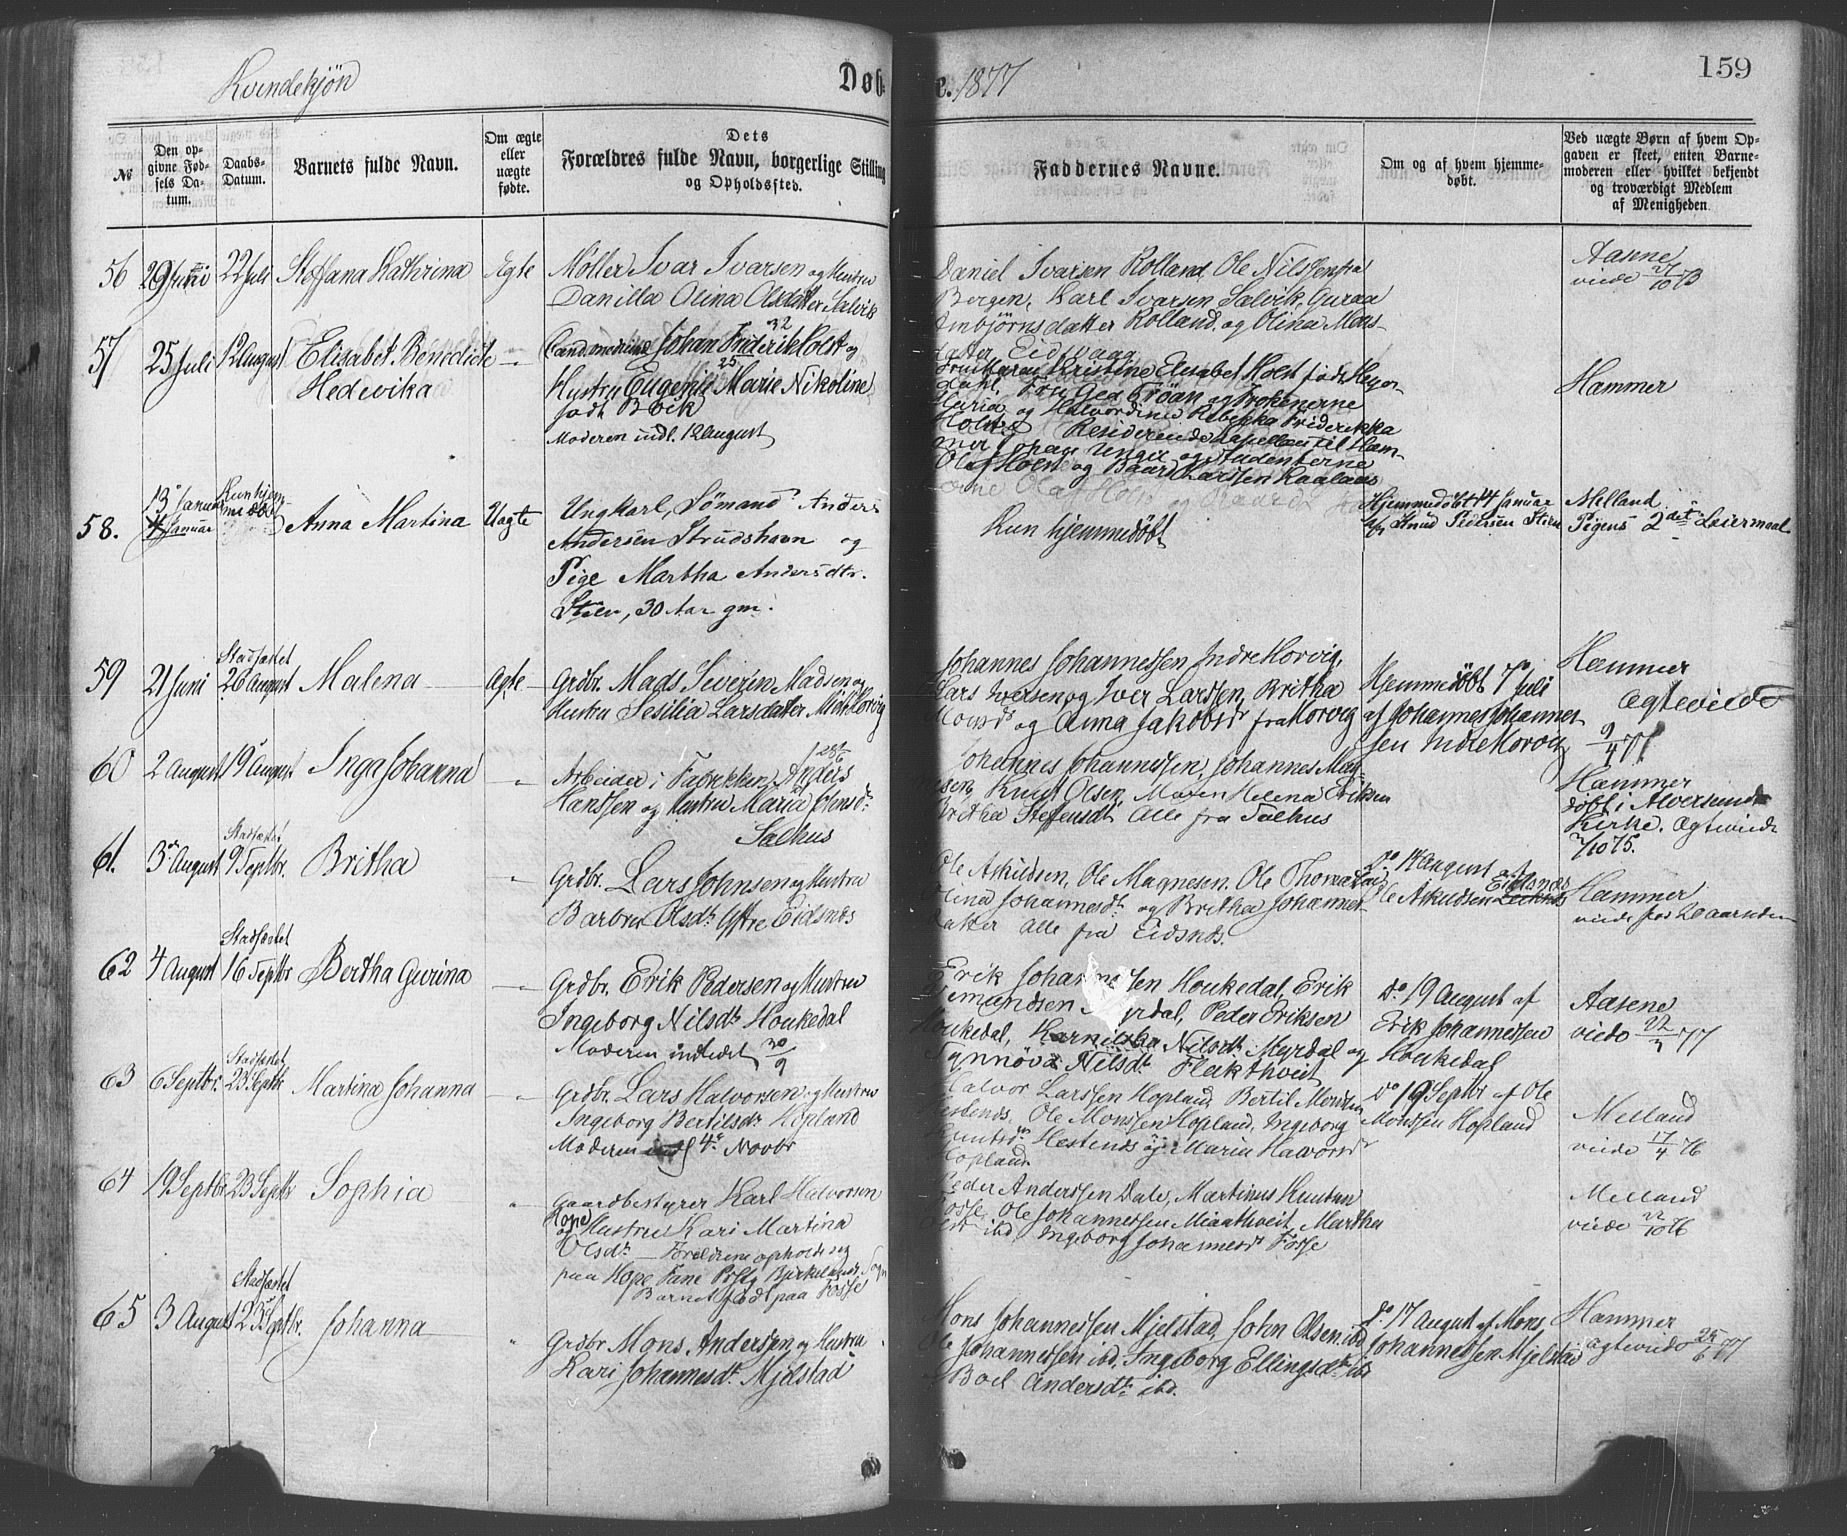 Kvindekjøn
Døb- e. 1877
159
№
Den op-
givne Fød-
sels Da-
tum.
Daabs-
Datum.
Barnets fulde Navn.
Om ægte
eller
uægte
fødte.
Dets
Forældres fulde Navn, borgerlige Stilling
og Opholdssted.
Faddernes Navne.
Om og af hvem hjemme-
døbt.
Ved uægte Børn af hvem Op-
gaven er skeet, enten Barne-
moderen eller hvilket bekjendt
og troværdigt Medlem
af Menigheden.
56 29 Juni 22 Juli Steffana Kathrina Ægte
Møller Ivar Ivarsen og Hustru
Danilla Olina Olsdatter Salvik
Daniel Ivarsen Rolland, Ole Nilssen fra
Bergen, Karl Ivarsen Salvik, Guraa
Ambjørnsdatter Rolland og Olina Mons-
datter Eidsvaag
Aasene
viede 27/10 73
57 25 Juli 12 August Elisabet Benedicte
Hedevika
Cand. medicine Johan Friderik Holst og
32
Hustru Eugenie Marie Nikoline
25
født Bøik
Moderen indl. 12 August
Kristine Elisabet Holst født Heyer-
dahl, og Frøkenerne
Maria og Halvordine Rebekka Friderikka
Holst, Residerende Kapellan til Ham-
mer Unger og Studenterne
Olaf Holst og Baard Larssen Raalaas
Hammer
58. 13 Januar
Januar
Kun hjem-
me døbt
Anna Martina Uægte
Ungkarl, Sømand Anders
Andersen Strudshavn og
Pige Martha Andersdtr.
Steen, 30 Aar gm.
Kun hjemmedøbt
Hjemmedøbt 14 Januar
af Knud Pedersen Steen
Melland
Pigens 2det Leiermaal
59 21 Juni
Stadfæstet
26 August Malena Ægte
Grdbr. Mads Severin Madsen og
Hustru Sesilia Larsdatter Midt Horvig
Johannes Johannessen Indre Horvig,
Lars Iversen og Iver Larssen, Britha
Monsdt. og Anna Jakobsdt. fra Horvig
Hjemmedøbt 7 Juli
af Johannes Johannes-
sen Indre Horvig
Hammer
Ægteviede
9/4 77
60 2 August 19 August Inga Johanna
Arbeider i Fabrikken Anders
Hanssen og Hustru Maria Johnsdt.
Salhus
Johannes Johannessen, Johannes Mag-
nesen, Knut Olsen, Maren Helena Eriksen
Britha Steffensdt. Alle fra Salhus
Hammer
døbt i Alversund
Kirke. Ægteviede
2/10 75.
61. 3 August
Stadfæstet
9 Septbr. Britha
Grdbr. Lars Johnsen og Hustru
Barbru Olsdt. Yttre Eidsnes
Ole Askildsen, Ole Magnesen, Ole Thomas
Olina Johannesdt. og Britha Johannes-
datter Alle fra Eidsnes.
Do. 14 August af
Ole Askildsen Eidsnes
Hammer
viede for 20 aar siden
62 4 August
Stadfæstet
16 Septbr Bertha Gurina
Grdbr. Erik Pedersen og Hustru
Ingeborg Nilsdt. Houkedal
Moderen indledet 30/9
Erik Johannessen Houkedal, Erik
Myrdal, Peder Eriksen
Houkedal, Nilsdt. Myrdal og
Synnöva Nilsdt. Flekthveit
Do. 19 August af
Erik Johannessen
Houkedal
Aasene
viede 22/3 77
63 6 Septbr.
Stadfæstet
23 Septbr Martina Johanna
Grdbr. Lars Halvorsen og Hustru
Ingeborg Bertilsdt. Hopland
Moderen indl 4 Novbr
Halvor Larssen Hopland, Bertil Monsen
Hestenes, Ole Monssen Hopland, Ingeborg
Hestenes og Marin Halvorsdt
Hopland.
Do 19 Septbr af Ole
Monssen Hopland
Melland
viede 17/4 76
64 19 Septbr 23 Septbr Sophia
Gaardbestyrer Karl Halvorsen
Hope
og Hustru Kari Martina
Olsdt. – Forældrene opholde sig
paa Hope, Fane Prstg Birkelands Sogn
Barnet født paa Fosse
Peder Anderssen Dale, Martinus Knutsen
Fosse, Ole Johannessen Miaathveit, Martha
ibd, Ingeborg Johannesdt. Fosse
Melland
viede 22/10 76
65 3 August
Stadfæstet
23 Septbr. Johanna
Grdbr Mons Andersen og Hustru
Kari Johannesdt. Mjelstad
Mons Johannessen Mjelstad, John Olsen ibd
Ole Johannessen ibd, Ingeborg Ellingsdt. ibd
Boel Andersdt. ibd.
Do. 17 August af Mons
Johannessen Mjelstad
Hammer
ægteviede 25/6 77